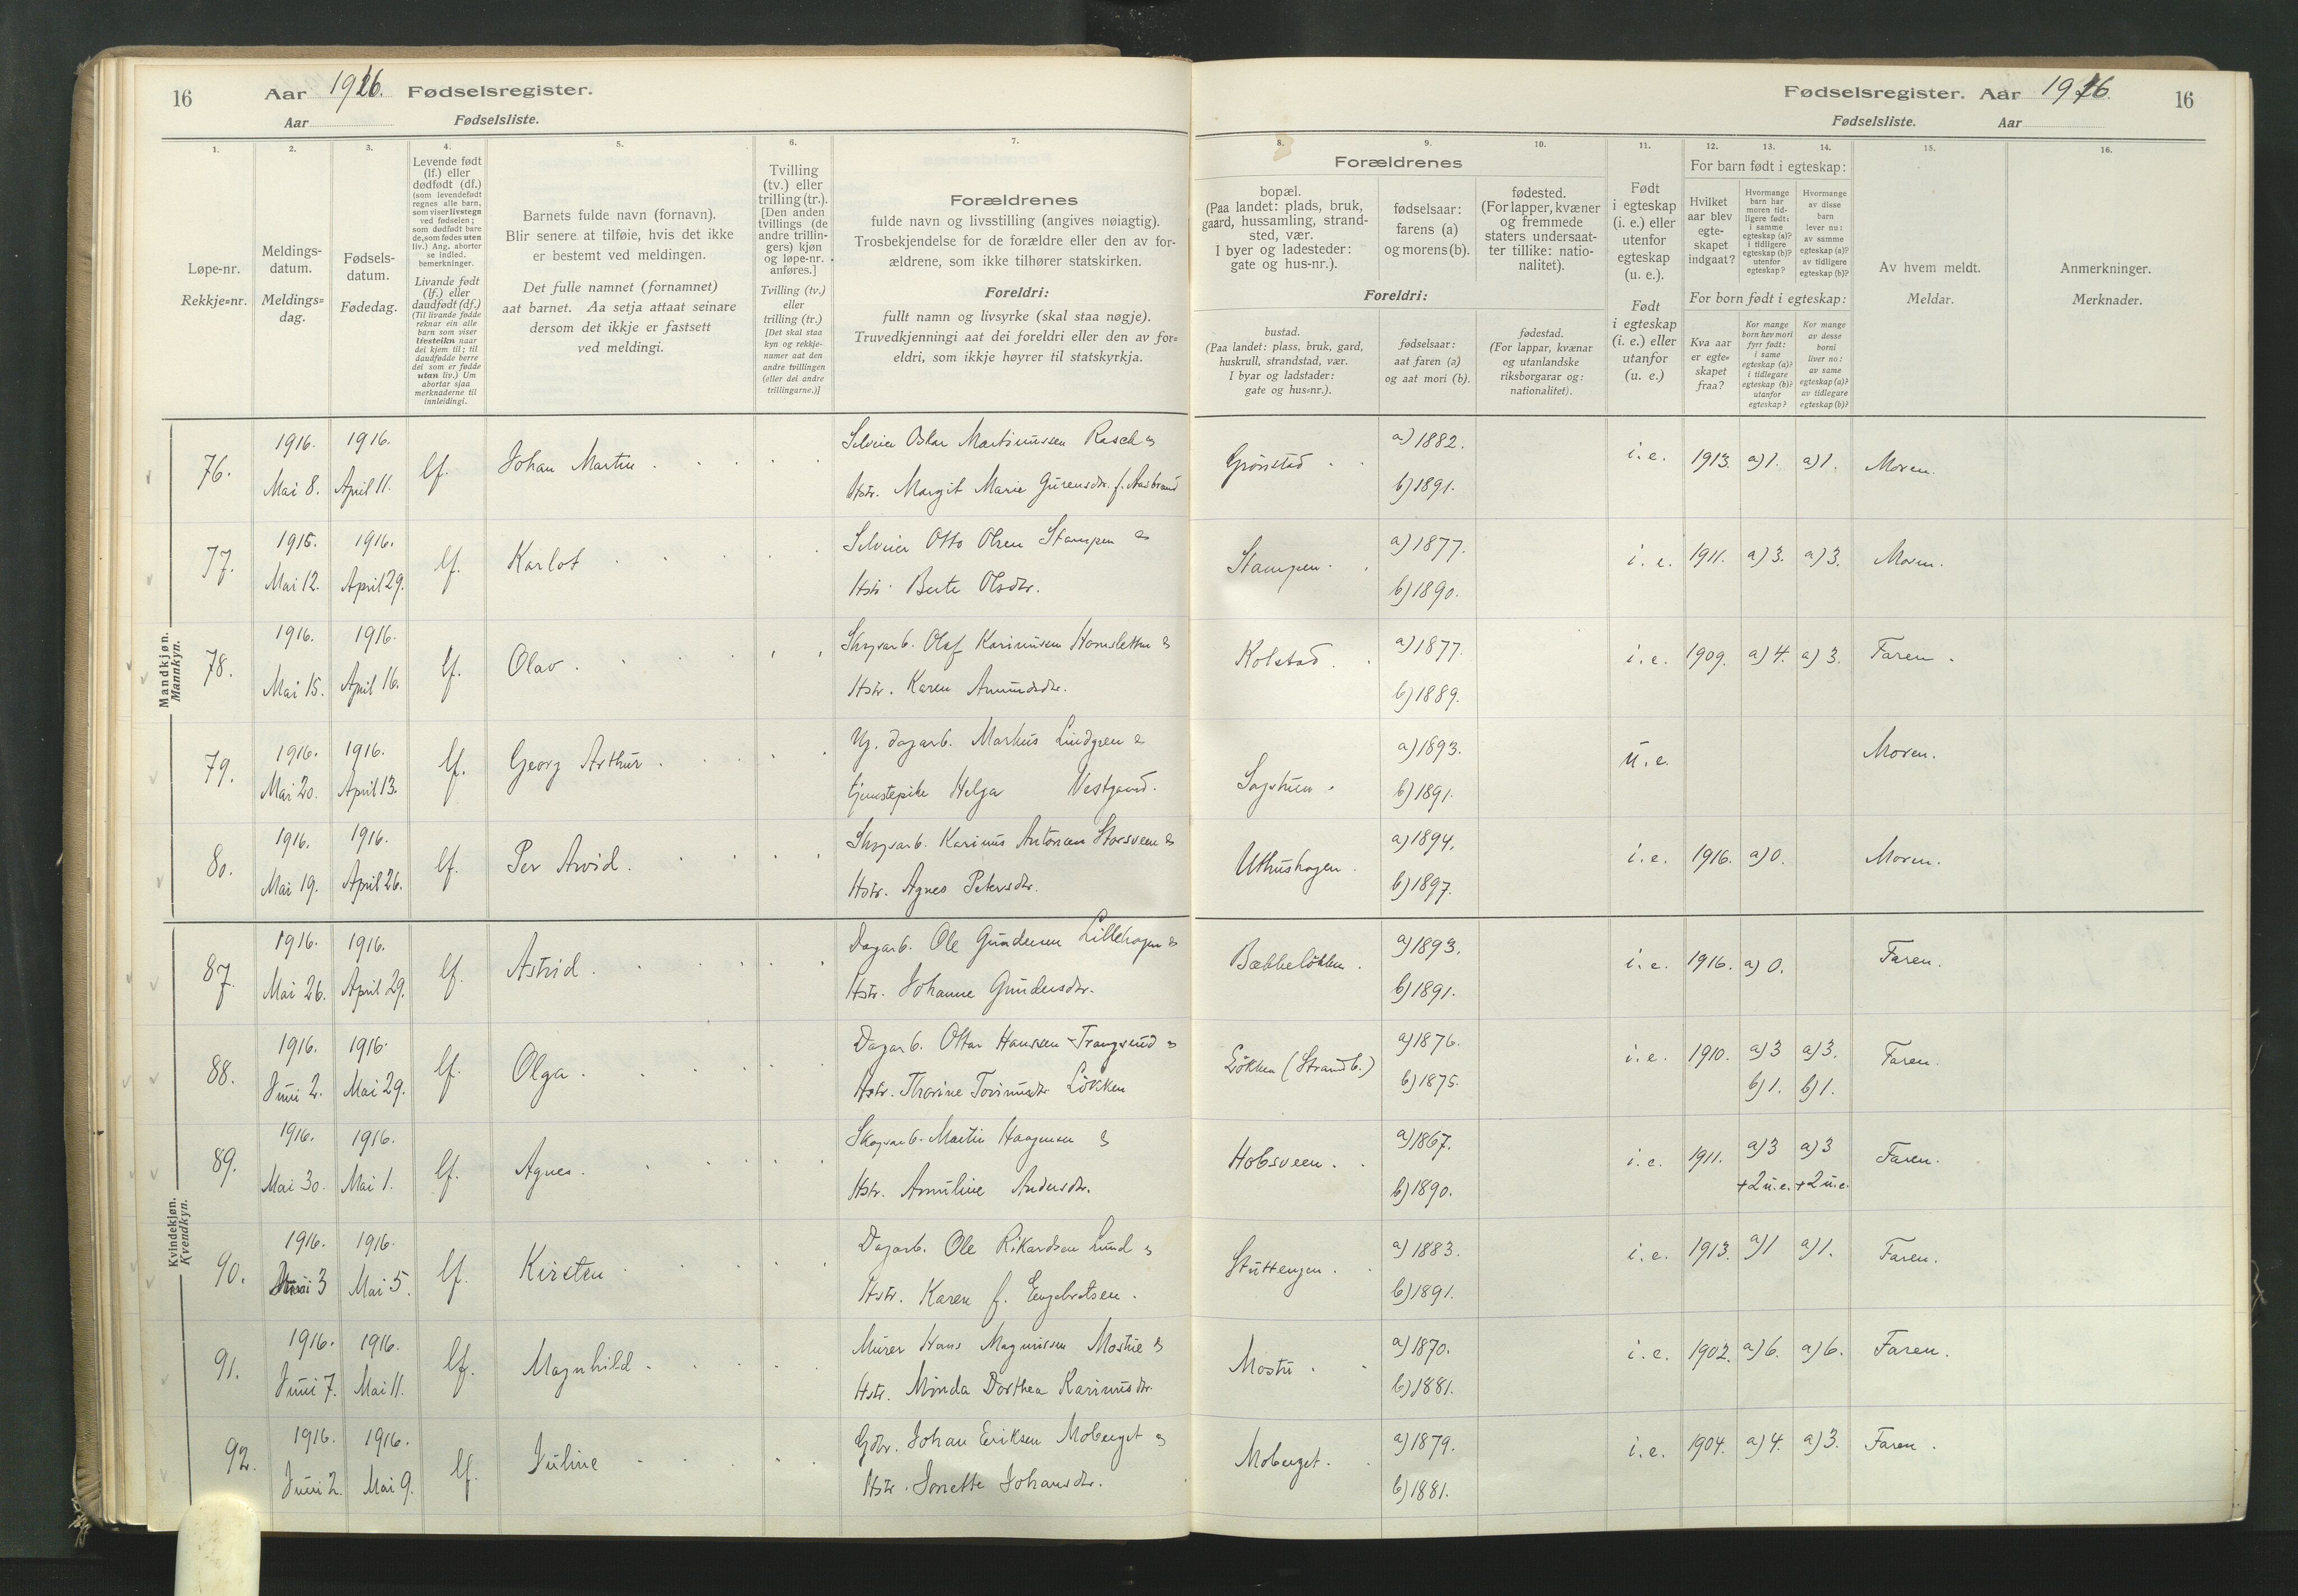 16 Aar 1916. Fødselsregister.
Aar Fødselsliste.
Fødselsregister. Aar 1916. 16
Fødselsliste. Aar
1. 2. 3. 4. 5. 6. 7. 8. 9. 10. 11. 12. 13. 14. 15. 16.
Løpe-nr.
Rekkje=nr.
Meldings-
datum.
Meldings=
dag.
Fødsels-
datum.
Fødedag.
Levende født
(lf.) eller
dødfødt (df.)
(som levendefødt
regnes alle barn,
som viser livstegn
ved fødselen;
som dødfødt bare
de, som fødes uten
liv.) Ang. aborter
se indled.
bemerkninger.
Livande født
(lf.) eller
daudfødt (df.)
(Til livande fødde
reknar ein alle
barn som viser
livsteikn naar
dei kjem til; til
daudfødde berre
dei som er fødde
utan liv.) Um
abortar sjaa
merknaderne til
innleidingi.
Barnets fulde navn (fornavn).
Blir senere at tilføie, hvis det ikke
er bestemt ved meldingen.
Det fulle namnet (fornamnet)
aat barnet. Aa setja attaat seinare
dersom det ikkje er fastsett
ved meldingi.
Tvilling
(tv.) eller
trilling (tr.).
[Den anden
tvillings (de
andre trillin-
gers) kjøn
og løpe-nr.
anføres.]
Tvilling (tv.)
eller
trilling (tr.)
[Det skal staa
kyn og rekkje-
numer aat den
andre tvillingen
(eller dei andre
trillingarne.)]
Forældrenes
fulde navn og livsstilling (angives nøiagtig).
Trosbekjendelse for de forældre eller den av for-
ældrene, som ikke tilhører statskirken.
Foreldri:
fullt namn og livsyrke (skal staa nøgje).
Truvedkjenningi aat dei foreldri eller den av for=
eldri, som ikkje høyrer til statskyrkja.
Forældrenes
bopæl.
(Paa landet: plads, bruk,
gaard, hussamling, strand-
sted, vær.
I byer og ladesteder:
gate og hus-nr.).
fødselsaar:
farens (a)
og morens (b).
fødested.
(For lapper, kvæner
og fremmede
staters undersaat-
ter tillike: natio-
nalitet).
Foreldri:
bustad.
(Paa landet: plass, bruk, gard,
huskrull, strandstad, vær.
I byar og ladstader:
gate og hus=nr.).
fødselsaar:
aat faren (a)
og aat mori (b).
fødestad.
(For lappar, kvænar
og utanlandske
riksborgarar og:
nationalitet).
Født
i egteskap
(i. e.) eller
utenfor
egteskap
(u. e.).
Født
i egteskap
(i. e.) eller
utanfor
(u. e.)
For barn født i egteskap:
Hvilket
aar blev
egte-
skapet
indgaat?
Hvormange
barn har
moren tid-
ligere født:
i samme
egteskap (a)?
i tidligere
egteskap (b)?
utenfor
egteskap?
Hvormange
av disse
barn
lever nu:
av samme
egteskap (a)?
av tidligere
egteskap (b)?
For born født i egteskap:
Kva aar
er egte=
skapet
fraa?
Kor mange
born hev mori
fyrr født:
i same
egteskap (a)?
i tidlegare
egteskap (b)?
utanfor
egteskap?
Kor mange
av desse
borni
liver no:
av same
egteskap (a)?
av tidlegare
egteskap (b)?
Av hvem meldt.
Meldar.
Anmerkninger.
Merknader.
Mandkjøn.
Mannkyn.
76. 1916. Mai 8. 1916. April 11. lf. Johan Martin
Selveier Oskar Martinussen Rasch &
Hstr. Margit Marie
Grönstad a) 1882. b) 1891. i. e. 1913. a) 1. a) 1. Moren.
77. 1916. Mai 12. 1916. April 29. lf. Karlot
Selveier Otto Olsen Stampen &
Hstr. Berte Olsdtr.
Stampen a) 1877. b) 1890. i. e. 1911. a) 3. a) 3. Moren.
78. 1916. Mai 15. 1916. April 16. lf. Olav
Skogsarb. Olaf Karinusen Hornsletten &
Hstr. Karen Amundsdtr.
Kolstad a) 1877. b) 1889. i. e. 1909. a) 4. a) 3. Faren.
79. 1916. Mai 20. 1916. April 13. lf. Georg Arthur
Ug. dagarb. Markus Lindgren &
tjenestepike Helga Vestgaard.
Sagstuen a) 1893. b) 1891. u. e. Moren.
80. 1916. Mai 19. 1916. April 26. lf. Per Arvid.
Skogsarb. Karinus Antonsen Storsveen &
Hstr. Agnes Petersdtr.
Uthushagen a) 1894. b) 1897. i. e. 1916. a) 0. Moren.
Kvindekjøn.
Kvendkyn.
87. 1916. Mai 26. 1916. April 29. lf. Astrid.
Dagarb. Ole Gundersen Lillehagen &
Hstr. Johanne Gundersdtr.
Bækkelökken a) 1893. b) 1891. i. e. 1916. a) 0. Faren.
88. 1916. Juni 2. 1916. Mai 29. lf. Olga
Dagarb. Ottar Hanssen Trangsrud &
Hstr. Thorine Lökken
Lökken (Strandb.) a) 1876. b) 1875. i. e. 1910. a) 3 b) 1. a) 3. b) 1. Faren.
89. 1916. Mai 30. 1916. Mai 1. lf. Agnes.
Skogsarb. Martin Haagensen &
Hstr. Anuline Andersdtr.
Hobsveen a) 1867. b) 1890. i. e. 1911. a) 3 +2 u.e. a) 3 +2 u.e. Faren.
90. 1916. 3 1916. Mai 5. lf. Kirsten
Dagarb. Ole Rikardsen Lund &
Hstr. Karen f. Engebretsen.
Stuttengen a) 1883. b) 1891. i. e. 1913. a) 1 a) 1. Faren.
91. 1916. Juni 7. 1916. Mai 11. lf. Magnhild
Murer Hans Magnussen Mostue &
Hstr. Minda Dorthea Karinusdtr.
Mostu a) 1870. b) 1881. i. e. 1902. a) 6. a) 6. Faren.
92. 1916. Juni 2. 1916. Mai 9. lf. Juline
Gdbr. Johan Eriksen Moberget &
Hstr. Jonette Johansdtr.
Moberget a) 1879. b) 1881. i. e. 1904. a) 4. a) 3. Faren.